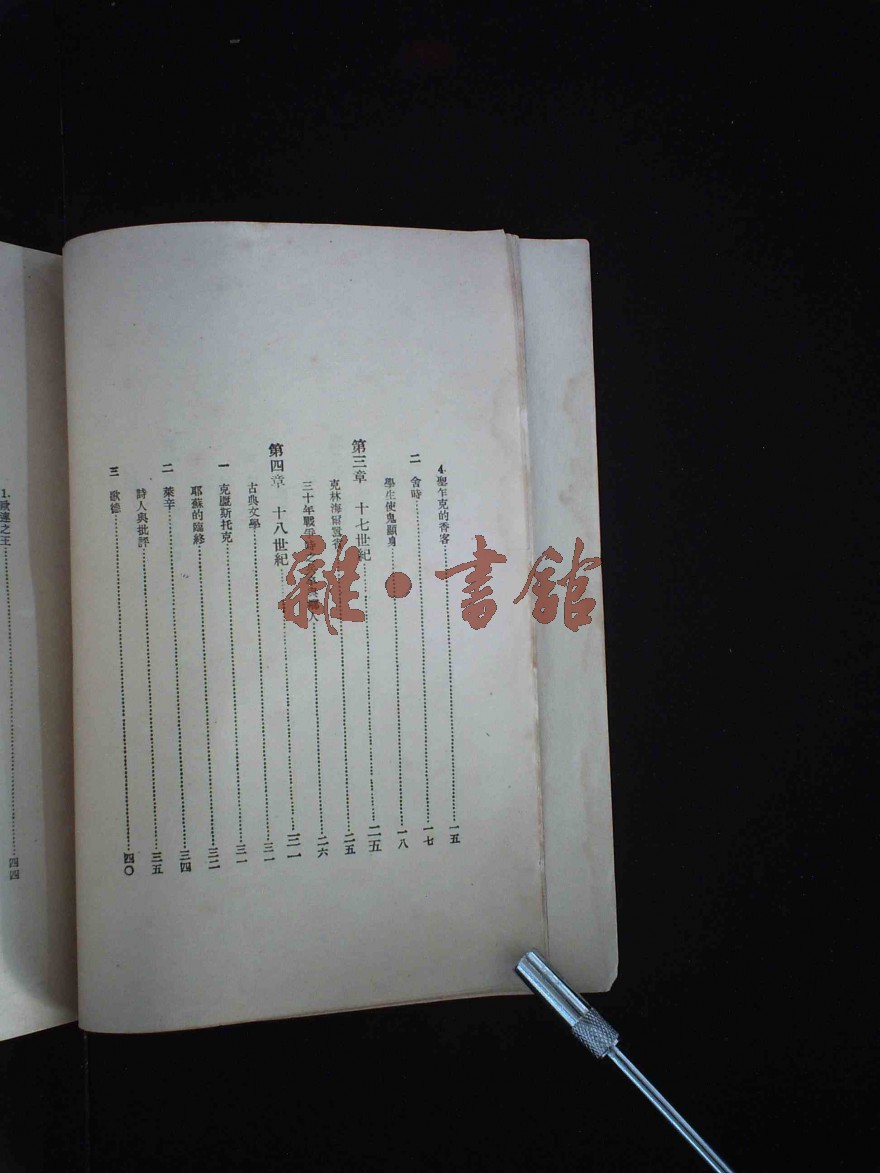 4.聖乍克的香客……一五
二 舍時……一七
學生使鬼顯身……一八
第三章 十七世紀……二五
克林海……二五
三十年戰爭時……人……二六
第四章 十八世紀……三一
古典文學……三一
一 克羅斯托克……三一
耶蘇的臨終……三二
二 萊辛……三四
詩人與批評……三五
三 歌德……四〇
1.歐連之王……四四
雜·書館